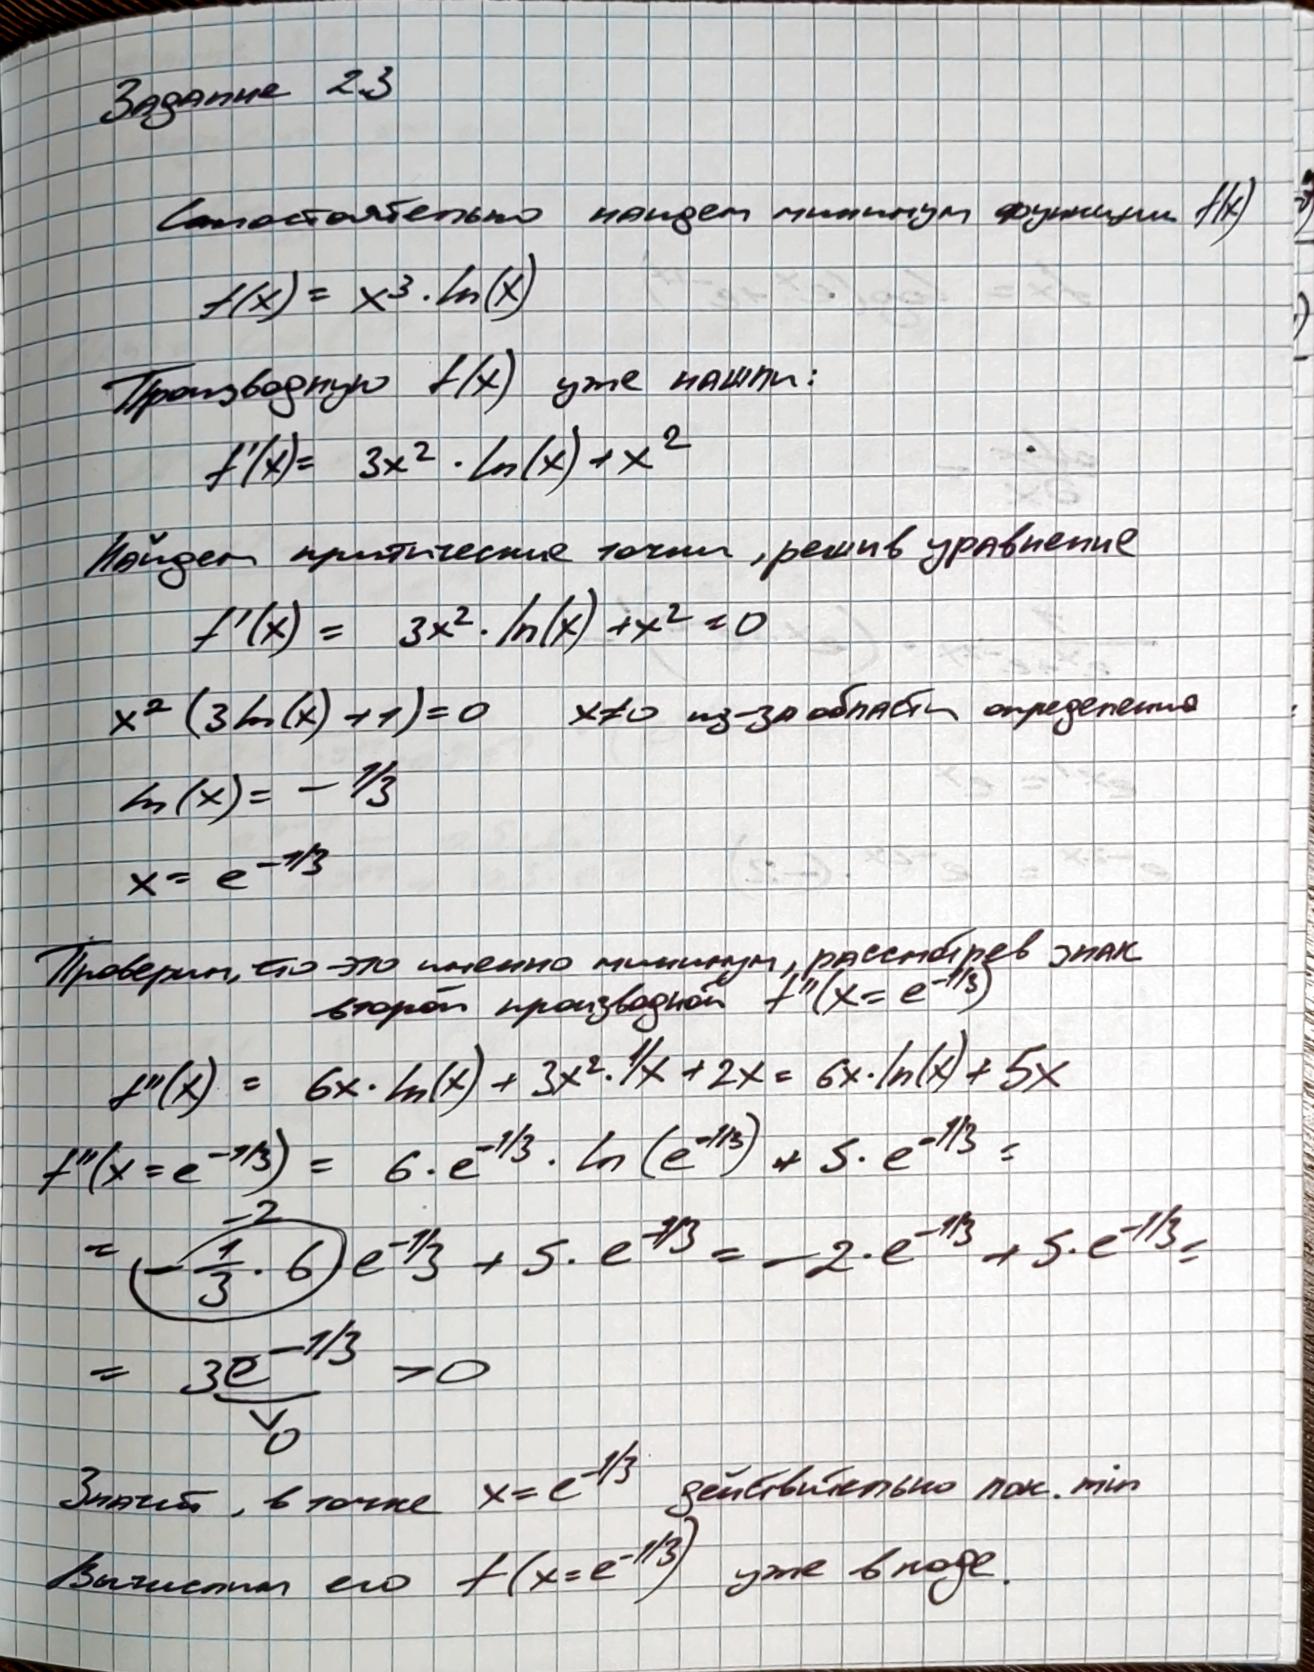 Задание 2.3
Самостоятельно найдем минимум функции f(x)
f(x) = x³ · ln(x)
Производную f(x) уже нашли:
f'(x) = 3x² · ln(x) + x²
Найдем критические точки, решив уравнение
f'(x) = 3x² · ln(x) + x² = 0
x² (3 ln(x) + 1) = 0   x ≠ 0 из-за области определения
ln(x) = - 1/3
x = e^{-1/3}
Проверим, что это именно минимум, рассмотрев знак
второй производной f''(x = e^{-1/3})
f''(x) = 6x · ln(x) + 3x² · 1/x + 2x = 6x · ln(x) + 5x
f''(x = e^{-1/3}) = 6 · e^{-1/3} · ln(e^{-1/3}) + 5 · e^{-1/3} =
-2
= (- 1/3 · 6) e^{-1/3} + 5 · e^{-1/3} = -2 · e^{-1/3} + 5 · e^{-1/3} =
= 3e^{-1/3} > 0
∨
0
Значит, в точке x = e^{-1/3} действительно лок. min
Вычислим его f(x = e^{-1/3}) уже в коде.